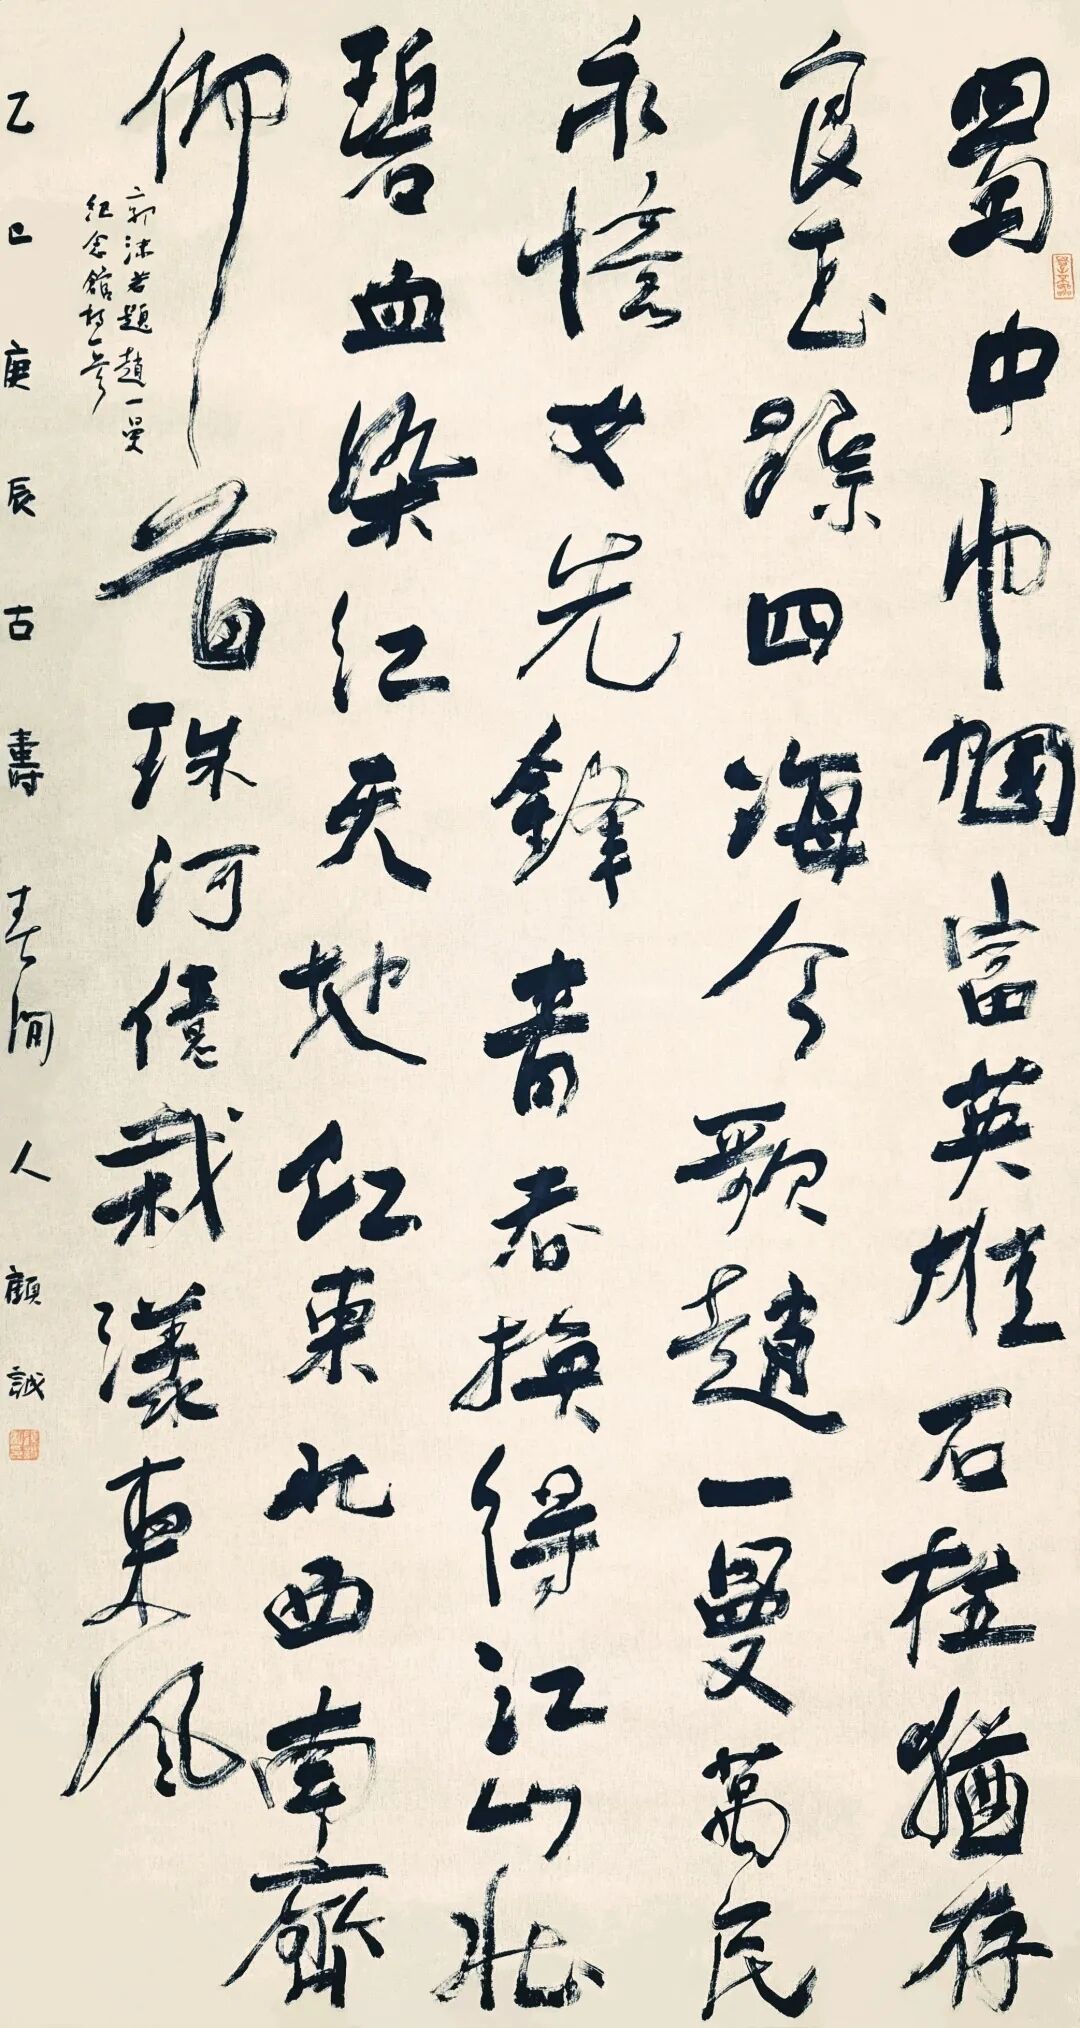 蜀中巾帼富英雄石柱猶存
良玉踪四海今歌趙一曼萬民
永憶女先鋒青春換得江山壯
碧血染紅天地紅東北西南齊
仰首珠河億載漾東風
郭沫若題趙一曼
紀念館詩一首
乙巳庚辰古壽春閒人顧誠